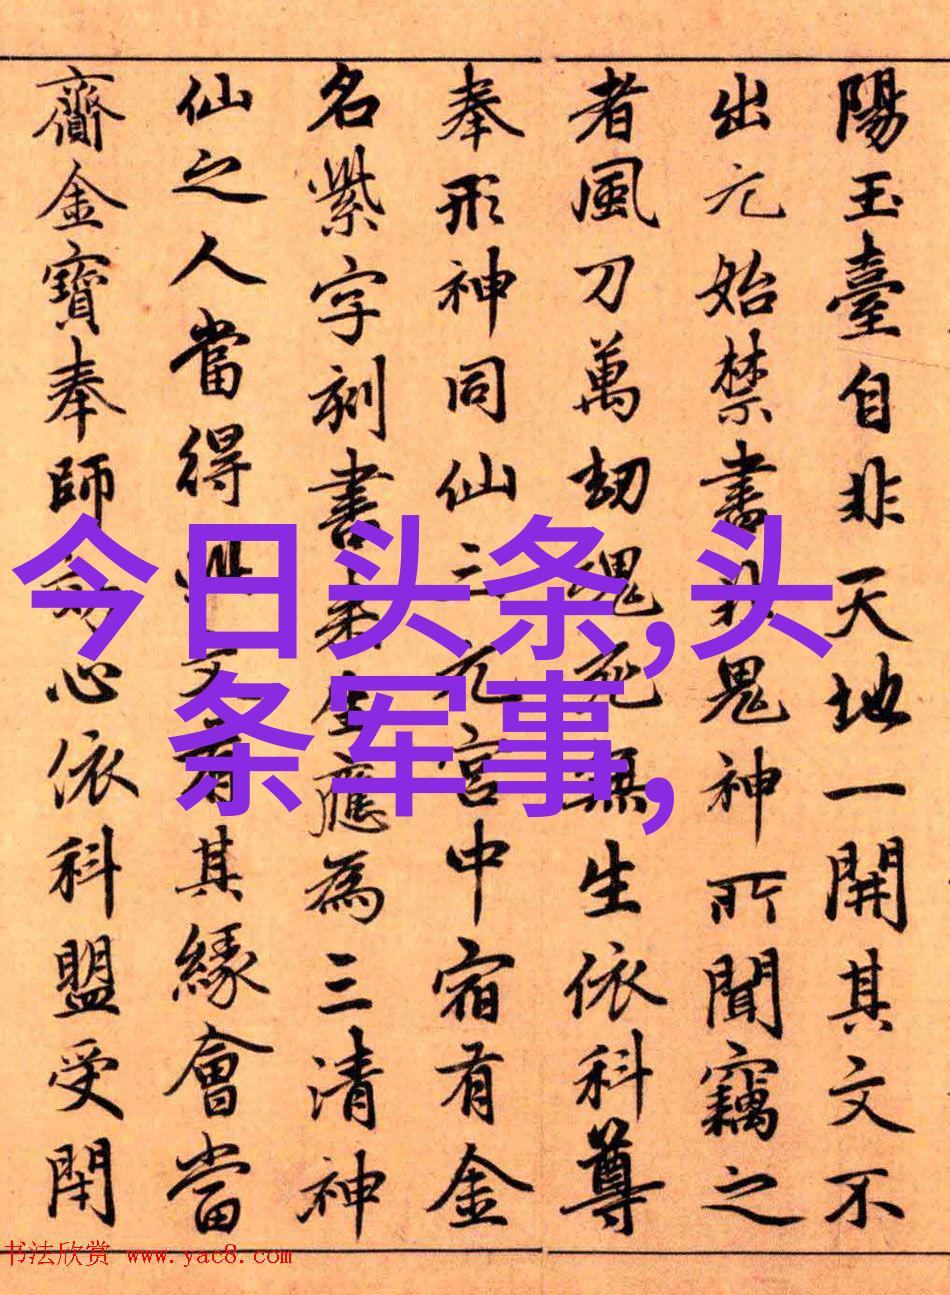 陽玉臺自非天地一開其文不
出元始禁書非鬼神所聞竊之
者風刀萬劫魂死無生依科尊
奉形神同仙三元宮中宿有金
名紫字刻書來生應為三清神
仙之人當得此文有其緣會當
齎金寶奉師 心依科盟受閉
今日头条,头
条军事,
书法欣赏 www.yac8.com